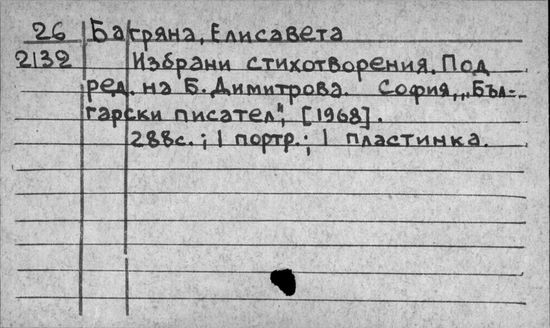 26 Багряна, Елисавета
2132 Избрани стихотворения. Под
ред. на Б. Димитрова. София, „Бъл-
гарски писател“, [1968].
288с. ; 1 портр. ; 1 пластинка.